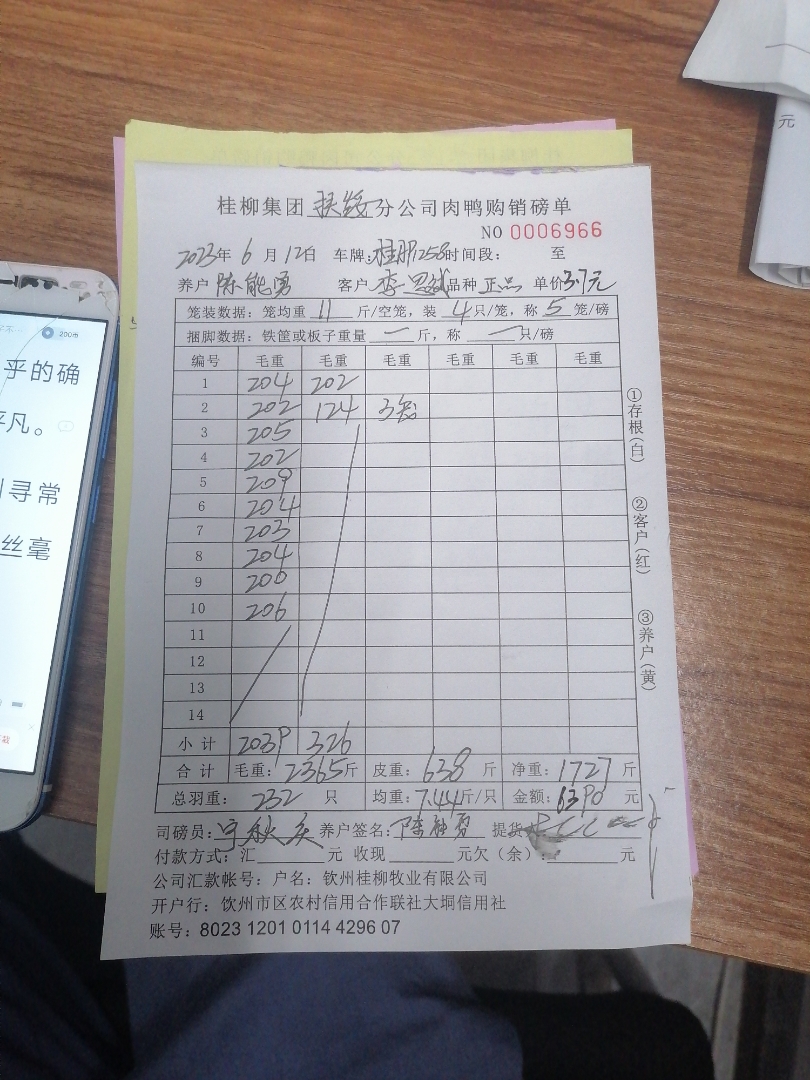 桂柳集团 分公司肉鸭购销磅单
NO 0006966
2023年 6 月 12日 车牌: 时间段: 至
养户 陈能勇 客户 李 品种 正品 单价 3.7元
笼装数据: 笼均重 11 斤/空笼, 装 4 只/笼, 称 5 笼/磅
捆脚数据: 铁筐或板子重量 一 斤, 称 一 只/磅
编号 毛重 毛重 毛重 毛重 毛重 毛重
1 204 202
2 202 124 3笼
3 205
4 202
5 209
6 204
7 203
8 204
9 200
10 206
11
12
13
14
小计 2039 326
合计 毛重: 2365斤 皮重: 638 斤 净重: 1727 斤
总羽重: 232 只 均重: 7.44斤/只 金额: 6390 元
司磅员: 养户签名: 陈能勇 提货
付款方式: 汇 元 收现 元欠(余): 元
公司汇款帐号: 户名: 钦州桂柳牧业有限公司
开户行: 钦州市区农村信用合作联社大垌信用社
账号: 8023 1201 0114 4296 07
①存根(白)
②客户(红)
③养户(黄)
200m
乎的确
平凡。
寻常
丝毫
元